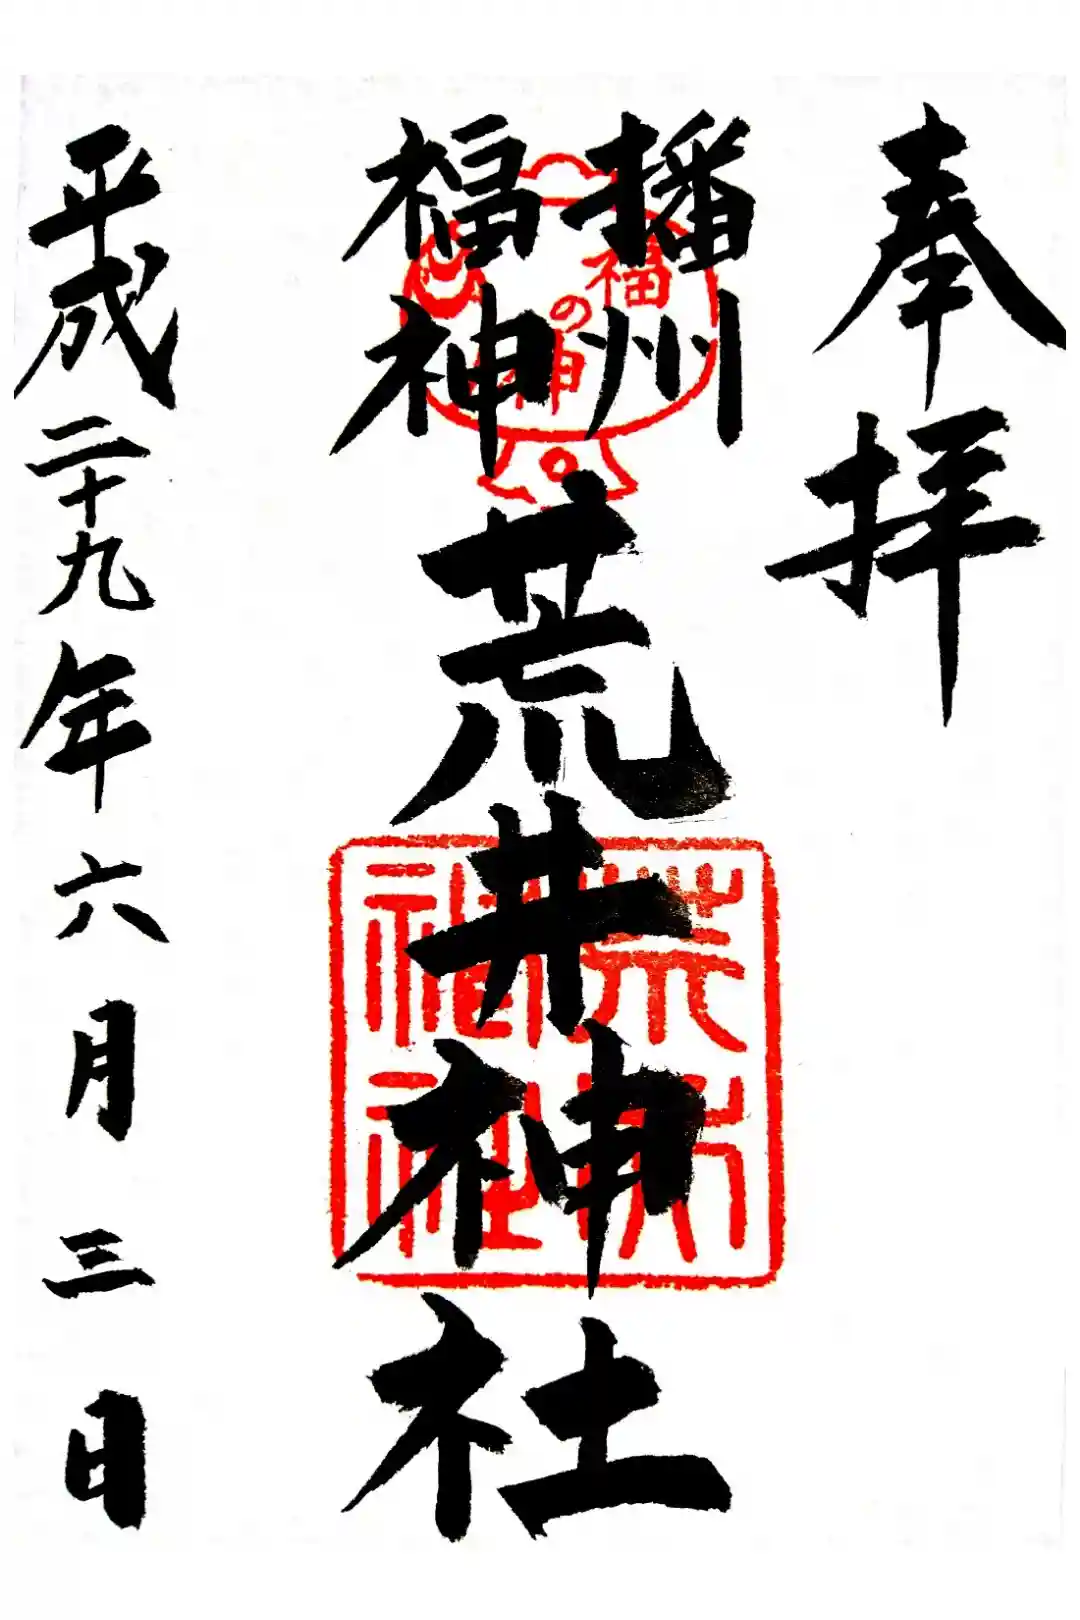 奉拝
播州
福神
荒井神社
福の神
平成二十九年六月三日